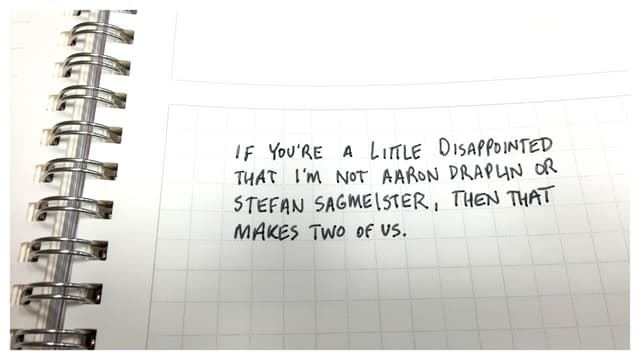 IF YOU'RE A LITTLE DISAPPOINTED
THAT I'M NOT AARON DRAPLIN OR
STEFAN SAGMEISTER, THEN THAT
MAKES TWO OF US.